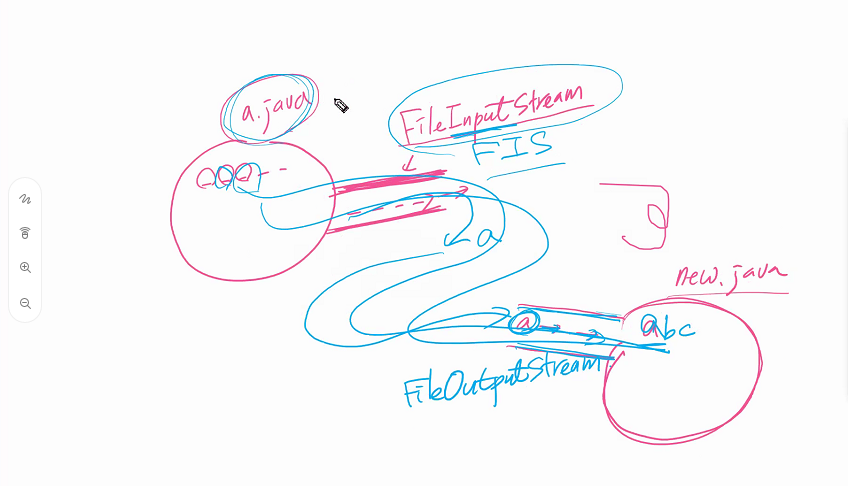 a.java
FileInputStream
FIS
a
new.java
a
abc
FileOutputStream